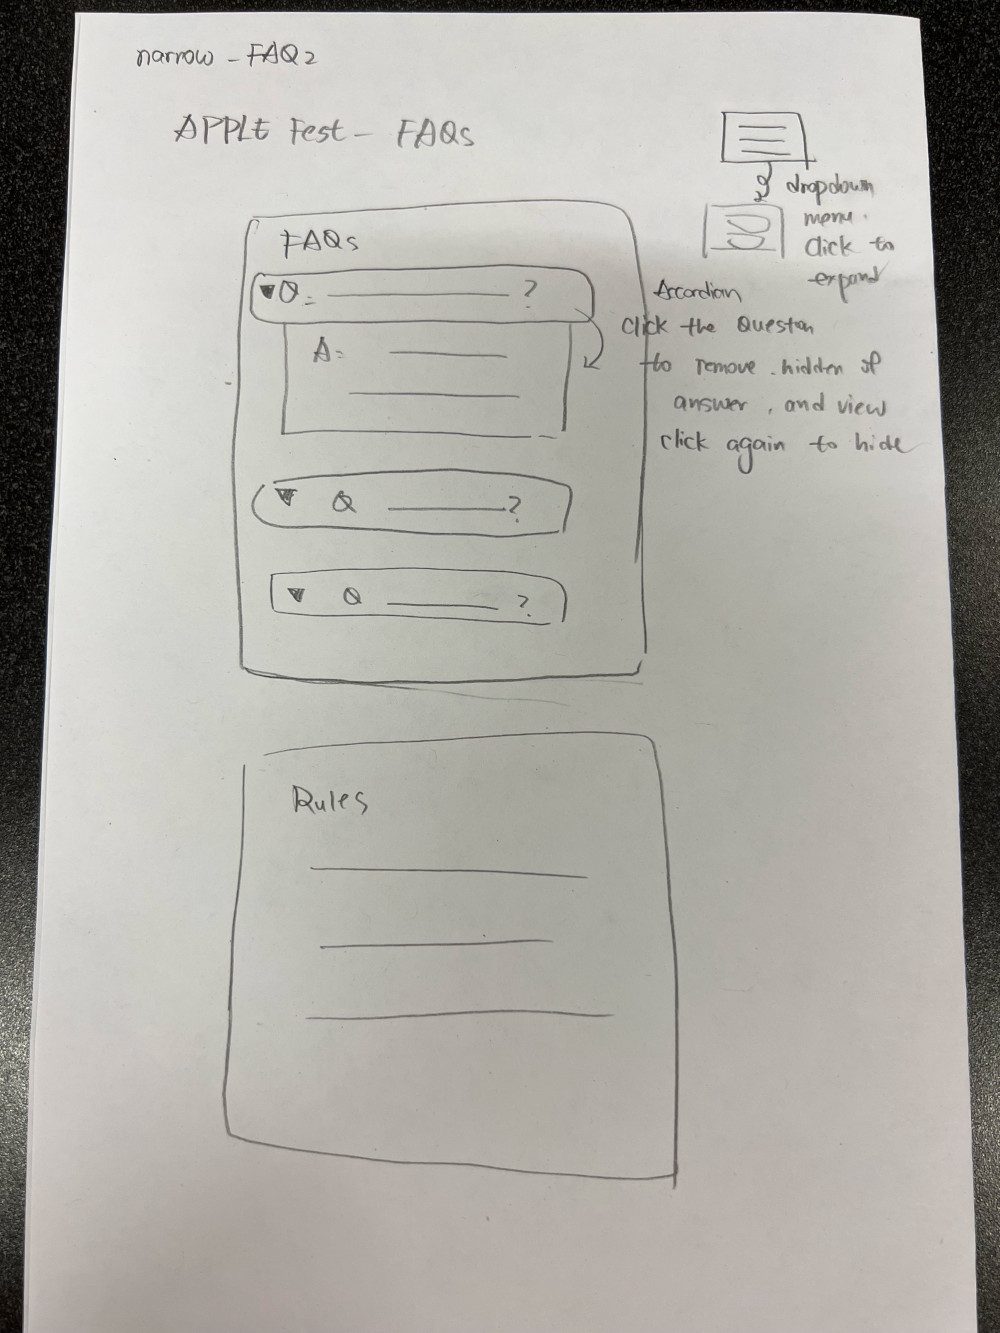 narrow - FAQ 2
APPLE Fest - FAQs
dropdown
menu.
Click to
expand
FAQs
Q: ?
Accordian
click the Question
to remove .hidden of
answer, and view
click again to hide
A:
Q ?
Q ?
Rules